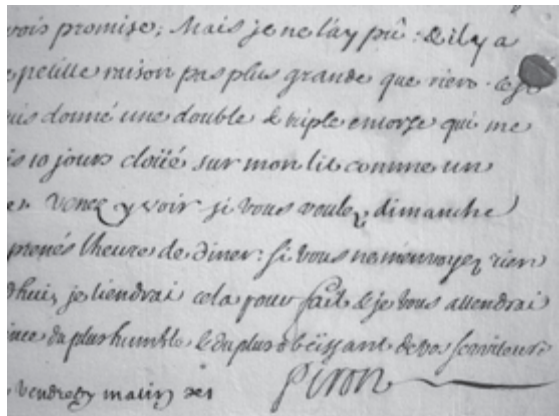 vois promise; Mais je ne l'ay pû: & il y a
petitte raison pas plus grande que rien. C'e
uis donné une double & triple entorse qui me
is 10 jours cloüé sur mon lit comme un
Venez y voir si vous voulez dimanche
prenés l'heure de diner: si vous ne m'envoyez rien
d'hui, je tiendrai cela pour fait & je vous attendrai
ience du plus humble & du plus obëissant de vos serviteurs
vendredy matin
Piron